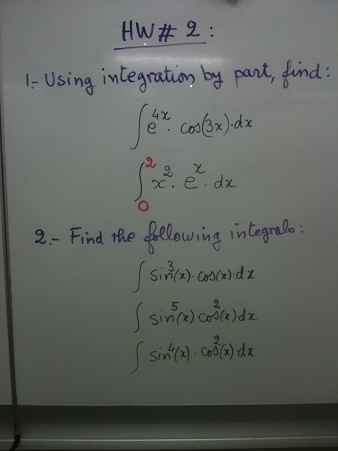 HW# 2:
1.- Using integration by part, find:
∫ e^4x · cos(3x)·dx
∫_0^2 x^2 · e^x · dx
2.- Find the following integrals:
∫ sin^3(x)·cos(x)·dx
∫ sin^5(x) cos^2(x) dx
∫ sin^4(x) · cos^2(x) dx